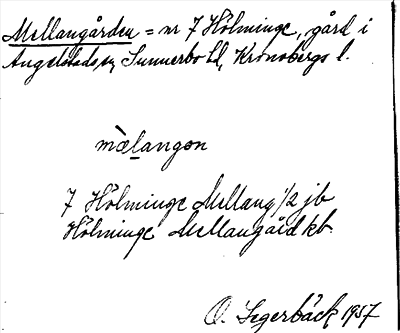 Mellangården = nr 7 Hölminge, gård i
Angelstads sn, Sunnerbo hd, Kronobergs l.
mælangon
7 Hölminge Mellang 1/2 jb
Hölminge Mellangård kb.
O. Segerbäck 1957